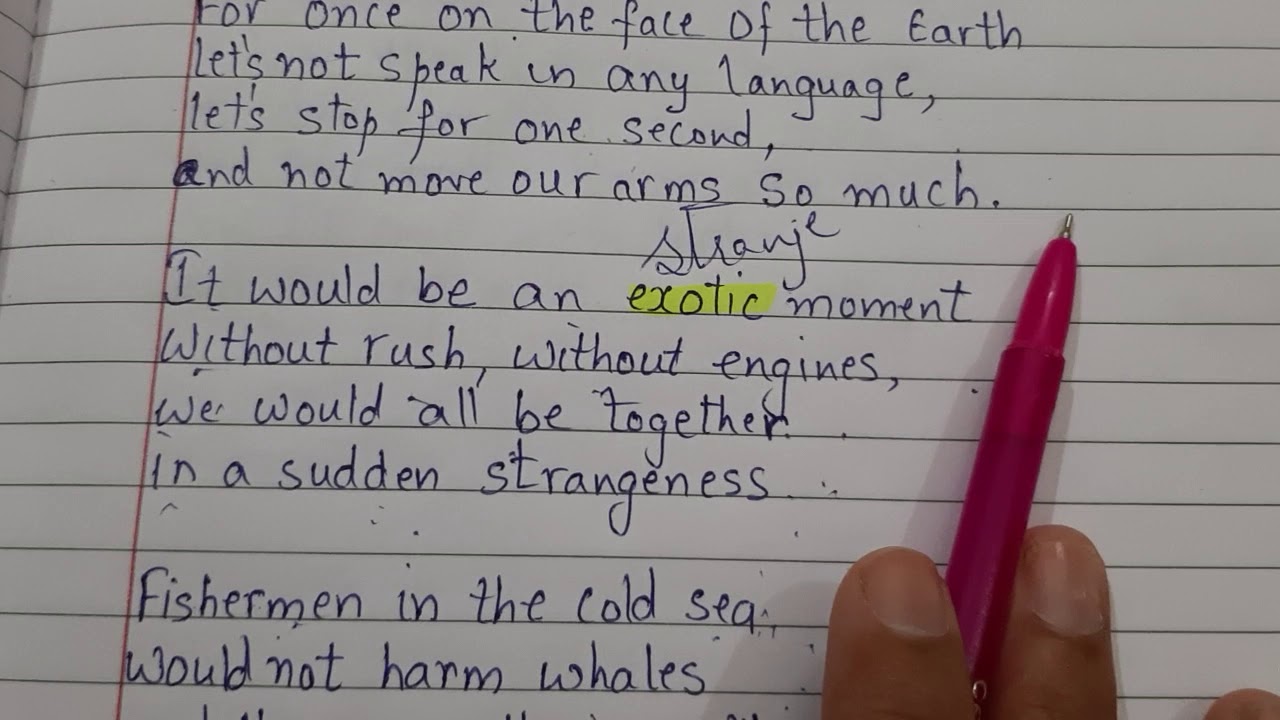 For once on the face of the Earth
let's not speak in any language,
let's stop for one second,
and not move our arms so much.
stranje
It would be an exotic moment
Without rush, without engines,
we would all be together
in a sudden strangeness.
Fishermen in the cold sea
would not harm whales